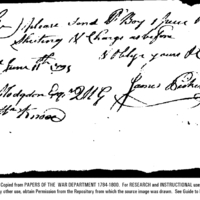 Sir please send Pr Boy 1 piece
Sheeting & Charge as before
& Oblige yours
June 11th 1795
James
Hodgdon Esqr QMG
Copied from PAPERS OF THE WAR DEPARTMENT 1784-1800. For RESEARCH and INSTRUCTIONAL use
y other use, obtain Permission from the Repository from which the source image was drawn. See Guide to